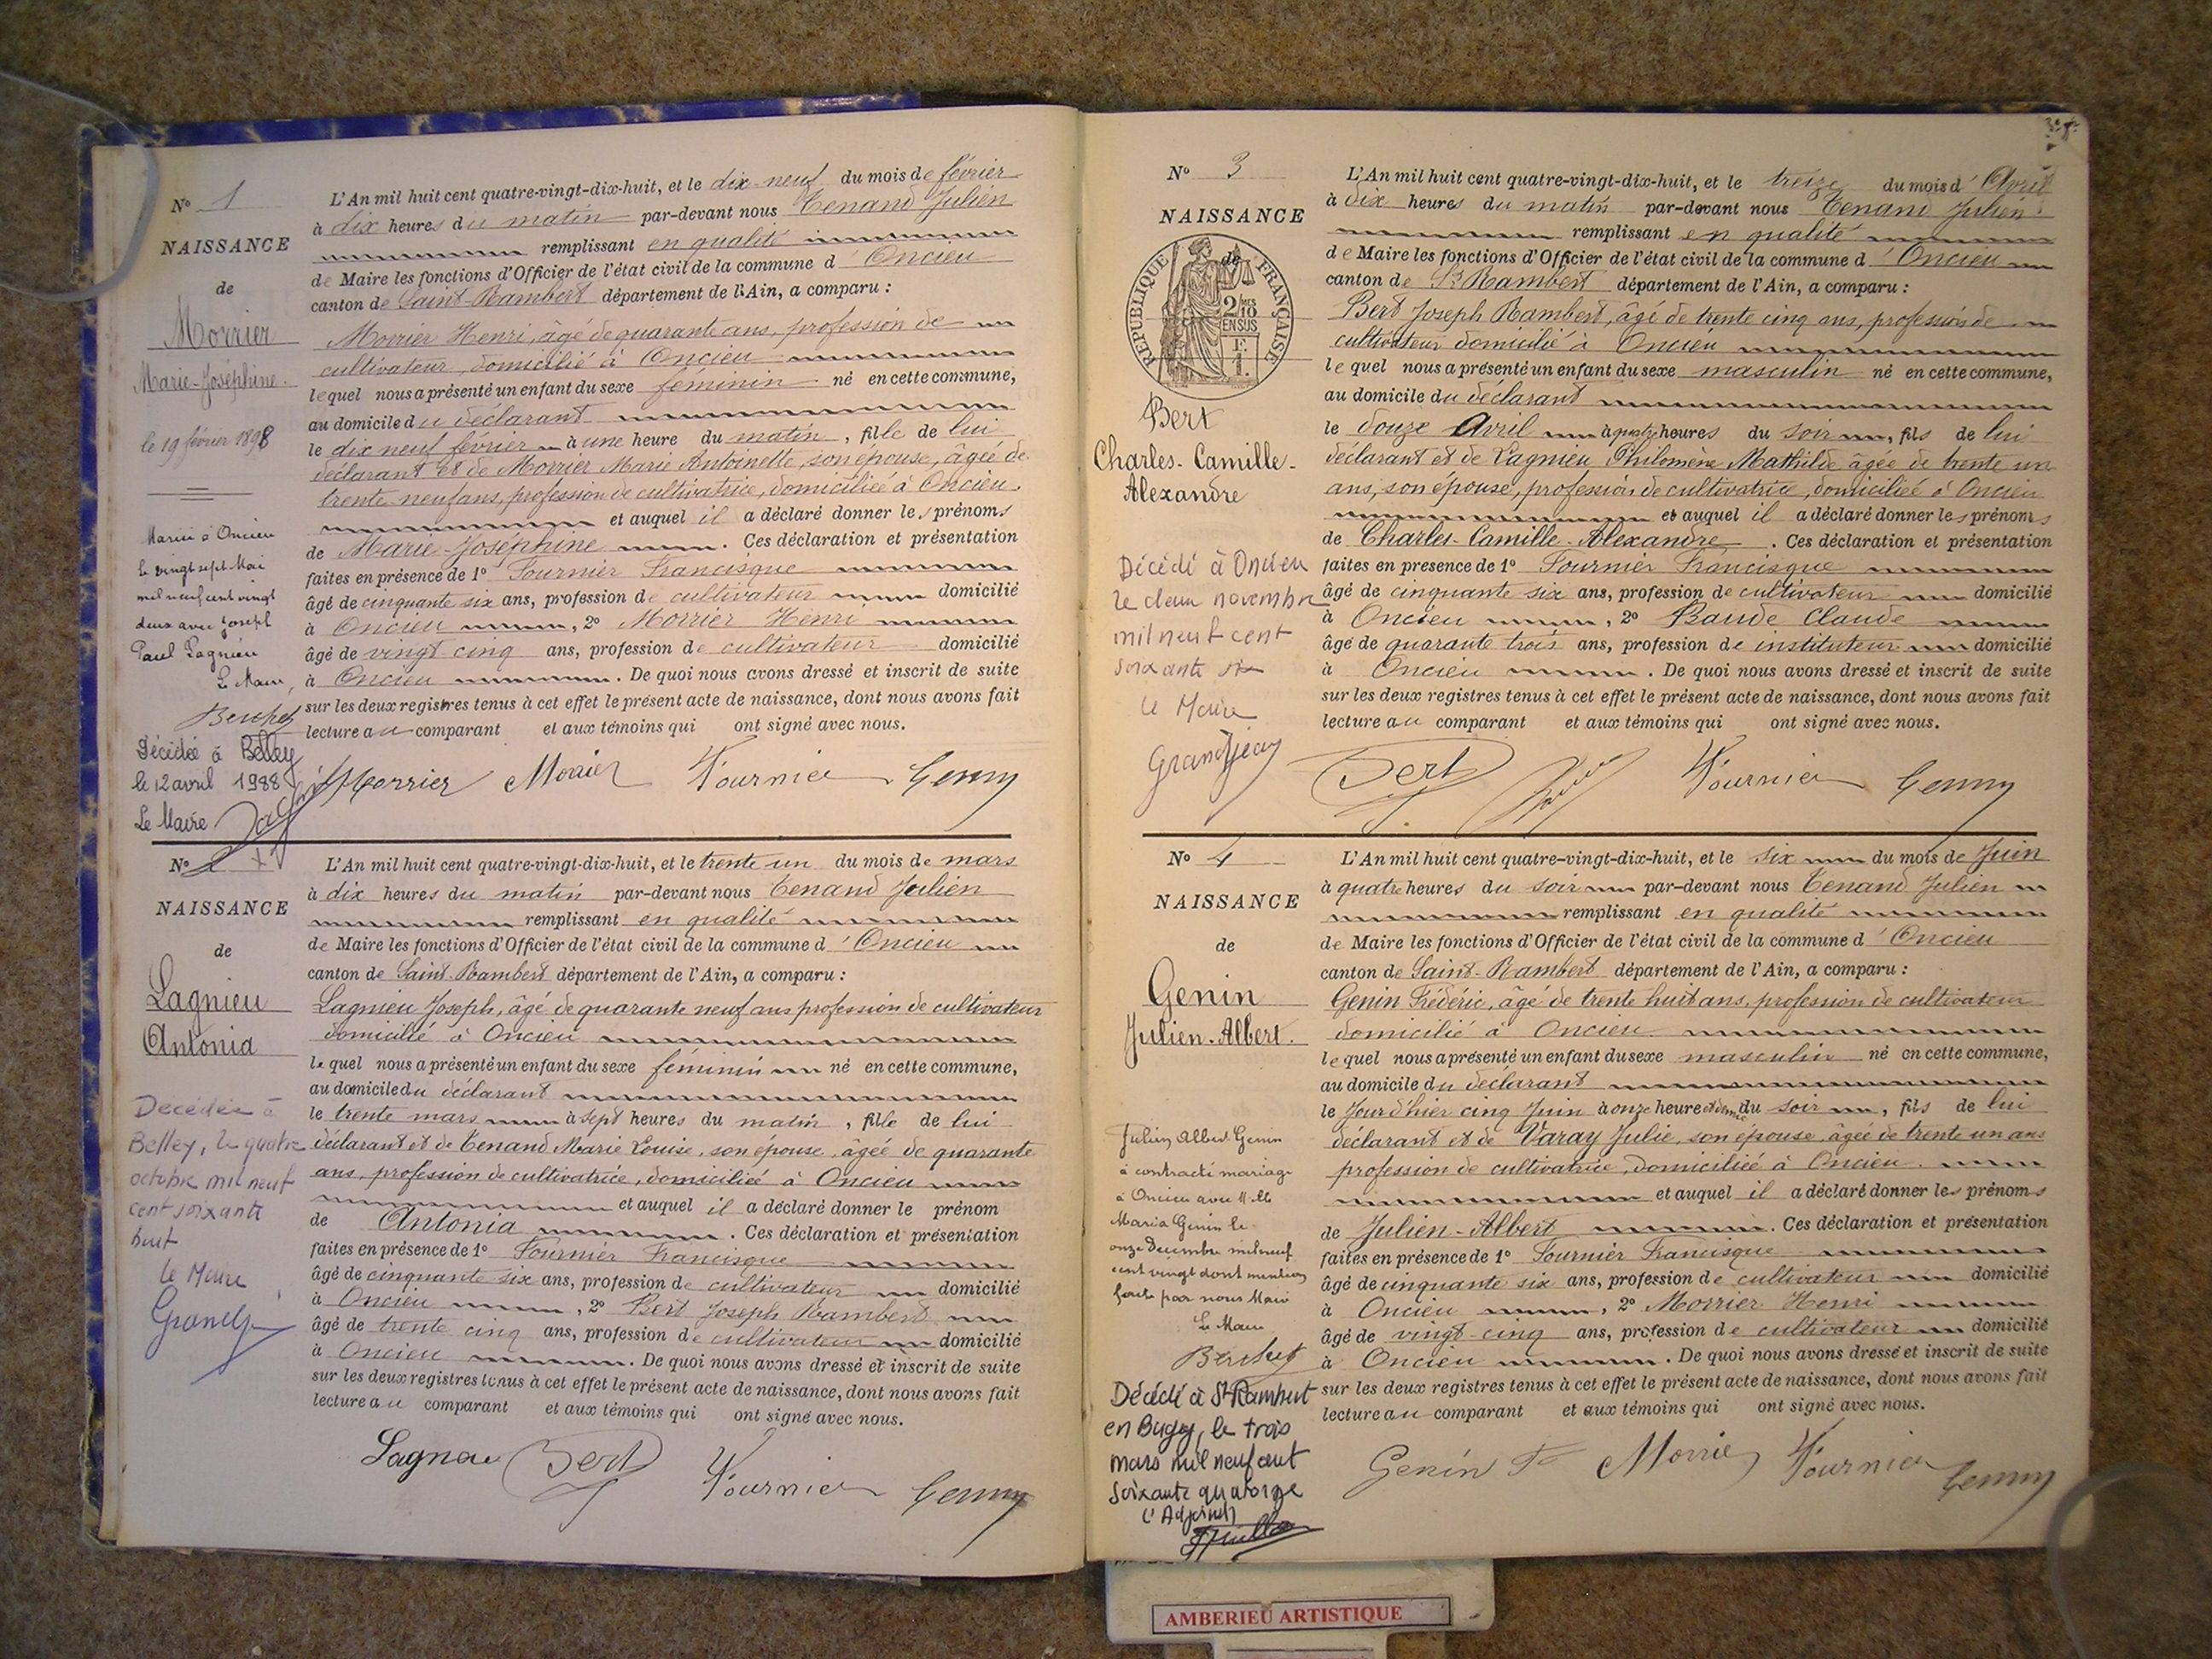 N° 1
NAISSANCE
de
Morrier
Marie-Joséphine.
le 19 février 1898
Mariée à Oncieu
le vingt sept Mai
mil neuf cent vingt
deux avec Joseph
Paul Lagnieu
Le Maire,
Berthet
Décédée à Belley
le 12 avril 1988
Le Maire
L'An mil huit cent quatre-vingt-dix-huit, et le dix-neuf du mois de février
à dix heures du matin par-devant nous Tenand Julien
remplissant en qualité
de Maire les fonctions d'Officier de l'état civil de la commune d'Oncieu
canton de Saint-Rambert département de l'Ain, a comparu :
Morrier Henri, âgé de quarante ans, profession de
cultivateur, domicilié à Oncieu
lequel nous a présenté un enfant du sexe féminin né en cette commune,
au domicile du déclarant
le dix neuf février à une heure du matin, fille de lui
déclarant et de Morrier Marie Antoinette, son épouse, âgée de
trente neuf ans, profession de cultivatrice, domiciliée à Oncieu.
et auquel il a déclaré donner les prénoms
de Marie-Joséphine. Ces déclaration et présentation
faites en présence de 1° Fournier Francisque
âgé de cinquante six ans, profession de cultivateur domicilié
à Oncieu, 2° Morrier Henri
âgé de vingt cinq ans, profession de cultivateur domicilié
à Oncieu. De quoi nous avons dressé et inscrit de suite
sur les deux registres tenus à cet effet le présent acte de naissance, dont nous avons fait
lecture au comparant et aux témoins qui ont signé avec nous.
Morrier Morrier Fournier
N° 2
NAISSANCE
de
Lagnieu
Antonia
Décédée à
Belley, le quatre
octobre mil neuf
cent soixante
huit
Le Maire
L'An mil huit cent quatre-vingt-dix-huit, et le trente un du mois de mars
à dix heures du matin par-devant nous Tenand Julien
remplissant en qualité
de Maire les fonctions d'Officier de l'état civil de la commune d'Oncieu
canton de Saint-Rambert département de l'Ain, a comparu :
Lagnieu Joseph, âgé de quarante neuf ans profession de cultivateur
domicilié à Oncieu
lequel nous a présenté un enfant du sexe féminin né en cette commune,
au domicile du déclarant
le trente mars à sept heures du matin, fille de lui
déclarant et de Tenand Marie Louise, son épouse, âgée de quarante
ans, profession de cultivatrice, domiciliée à Oncieu
et auquel il a déclaré donner le prénom
de Antonia. Ces déclaration et présentation
faites en présence de 1° Fournier Francisque
âgé de cinquante six ans, profession de cultivateur domicilié
à Oncieu, 2° Bert Joseph Rambert
âgé de trente cinq ans, profession de cultivateur domicilié
à Oncieu. De quoi nous avons dressé et inscrit de suite
sur les deux registres tenus à cet effet le présent acte de naissance, dont nous avons fait
lecture au comparant et aux témoins qui ont signé avec nous.
Bert Fournier
N° 3
NAISSANCE
de
RÉPUBLIQUE FRANÇAISE
2/10 EN SUS
Bert
Charles-Camille-
Alexandre
Décédé à Oncieu
le deux novembre
mil neuf cent
soixante six
Le Maire
Grandjean
L'An mil huit cent quatre-vingt-dix-huit, et le treize du mois d'Avril
à dix heures du matin par-devant nous Tenand Julien
remplissant en qualité
de Maire les fonctions d'Officier de l'état civil de la commune d'Oncieu
canton de St Rambert département de l'Ain, a comparu :
Bert Joseph Rambert, âgé de trente cinq ans, profession de
cultivateur domicilié à Oncieu
lequel nous a présenté un enfant du sexe masculin né en cette commune,
au domicile du déclarant
le douze Avril à quatre heures du soir, fils de lui
déclarant et de Lagnieu Philomène Mathilde âgée de trente un
ans, son épouse, profession de cultivatrice, domiciliée à Oncieu
et auquel il a déclaré donner les prénoms
de Charles-Camille-Alexandre. Ces déclaration et présentation
faites en présence de 1° Fournier Francisque
âgé de cinquante six ans, profession de cultivateur domicilié
à Oncieu, 2° Baude Claude
âgé de quarante trois ans, profession de instituteur domicilié
à Oncieu. De quoi nous avons dressé et inscrit de suite
sur les deux registres tenus à cet effet le présent acte de naissance, dont nous avons fait
lecture au comparant et aux témoins qui ont signé avec nous.
Bert Fournier
N° 4
NAISSANCE
de
Genin
Julien-Albert.
Julien Albert Genin
a contracté mariage
à Oncieu avec Mlle
Maria Genin le
onze décembre mil neuf
cent vingt dont mention
faite par nous Maire
Le Maire
Berthet
Décédé à St Rambert
en Bugey, le trois
mars mil neuf cent
soixante quatorze
L'Adjoint
L'An mil huit cent quatre-vingt-dix-huit, et le six du mois de Juin
à quatre heures du soir par-devant nous Tenand Julien
remplissant en qualité
de Maire les fonctions d'Officier de l'état civil de la commune d'Oncieu
canton de Saint-Rambert département de l'Ain, a comparu :
Genin Frédéric, âgé de trente huit ans, profession de cultivateur
domicilié à Oncieu.
lequel nous a présenté un enfant du sexe masculin né en cette commune,
au domicile du déclarant
le Jour d'hier cinq Juin à onze heure et demie du soir, fils de lui
déclarant et de Varay Julie, son épouse, âgée de trente un ans
profession de cultivatrice, domiciliée à Oncieu.
et auquel il a déclaré donner les prénoms
de Julien-Albert. Ces déclaration et présentation
faites en présence de 1° Fournier Francisque
âgé de cinquante six ans, profession de cultivateur domicilié
à Oncieu, 2° Morrier Henri
âgé de vingt-cinq ans, profession de cultivateur domicilié
à Oncieu. De quoi nous avons dressé et inscrit de suite
sur les deux registres tenus à cet effet le présent acte de naissance, dont nous avons fait
lecture au comparant et aux témoins qui ont signé avec nous.
Genin Morrier Fournier
AMBERIEU ARTISTIQUE